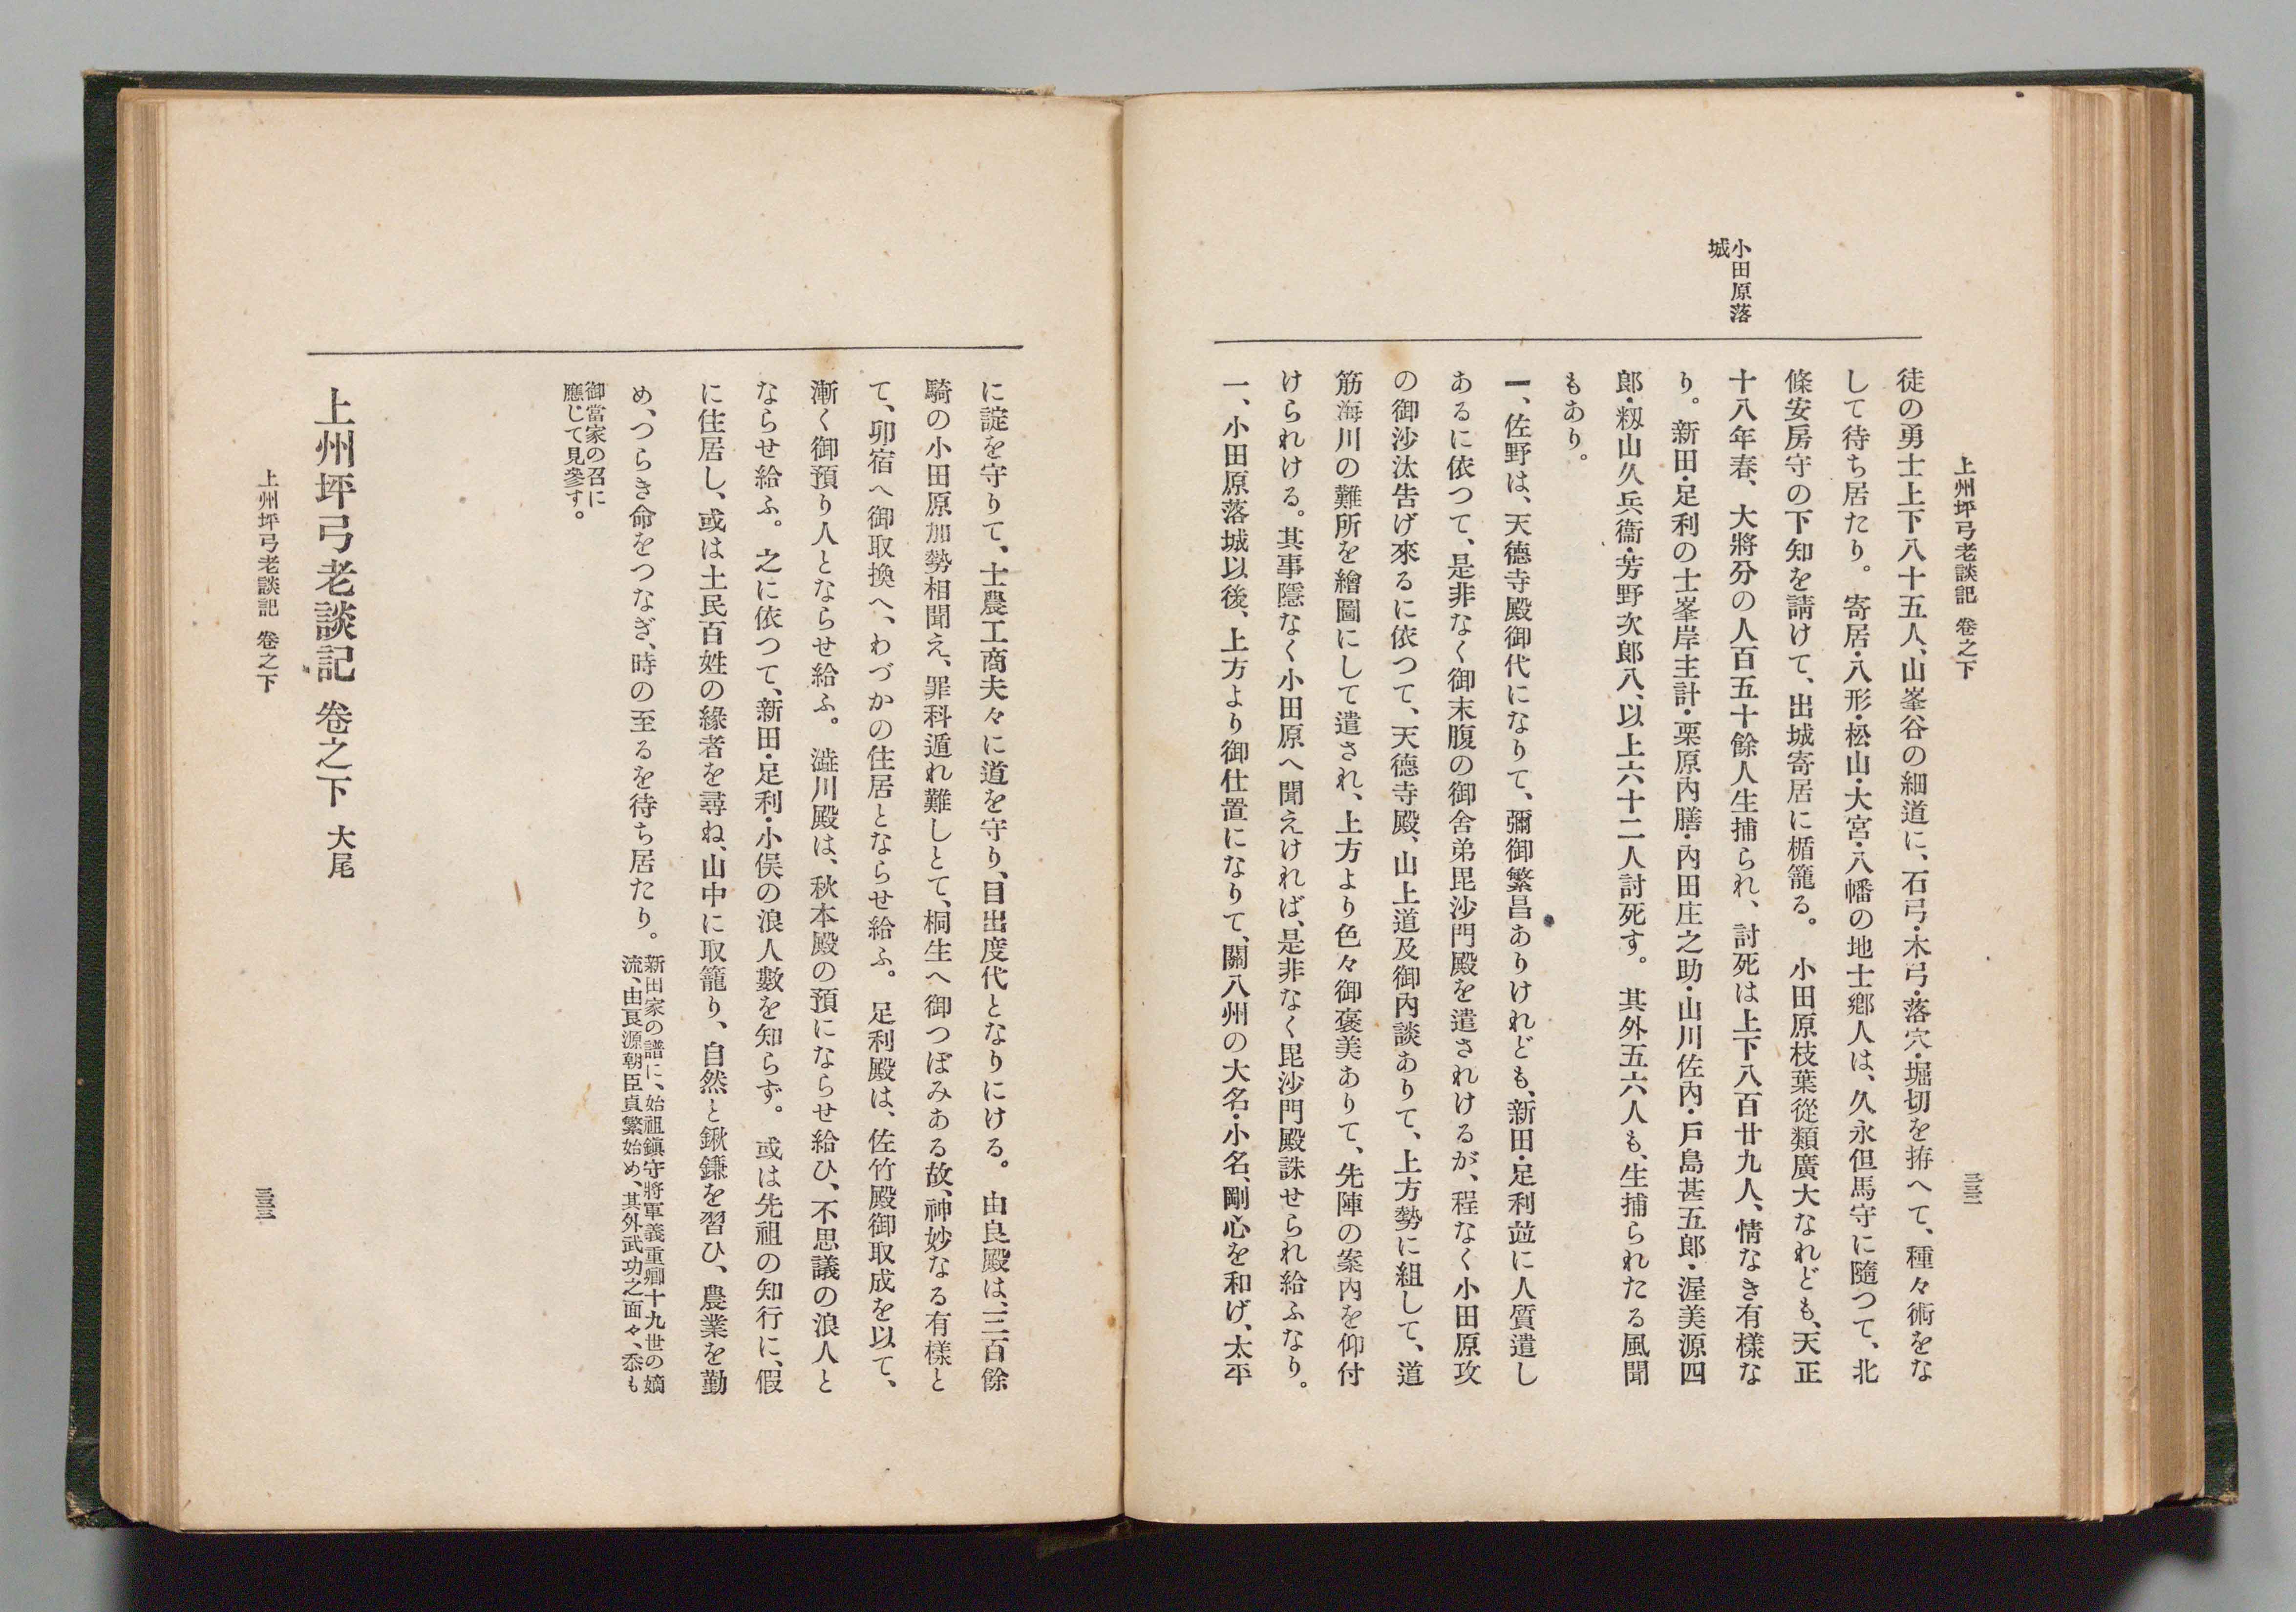 上州坪弓老談記 卷之下
小田原落
城
徒の勇士上下八十五人、山峯谷の細道に、石弓・木弓・落穴・堀切を拵へて、種々術をな
して待ち居たり。寄居・八形・松山・大宮・八幡の地士鄕人は、久永但馬守に隨つて、北
條安房守の下知を請けて、出城寄居に楯籠る。小田原枝葉從類廣大なれども、天正
十八年春、大將分の人百五十餘人生捕られ、討死は上下八百廿九人、情なき有樣な
り。新田・足利の士峯岸主計・栗原內膳・內田庄之助・山川佐內・戶島甚五郎・渥美源四
郎・籾山久兵衞・芳野次郎八、以上六十二人討死す。其外五六人も、生捕られたる風聞
もあり。
一、佐野は、天德寺殿御代になりて、彌御繁昌ありけれども、新田・足利竝に人質遣し
あるに依つて、是非なく御末腹の御舍弟毘沙門殿を遣されけるが、程なく小田原攻
の御沙汰告げ來るに依つて、天德寺殿、山上道及御內談ありて、上方勢に組して、道
筋海川の難所を繪圖にして遣され、上方より色々御褒美ありて、先陣の案內を仰付
けられける。其事隱なく小田原へ聞えければ、是非なく毘沙門殿誅せられ給ふなり。
一、小田原落城以後、上方より御仕置になりて、關八州の大名・小名、剛心を和げ、太平
に諚を守りて、士農工商夫々に道を守り、目出度代となりにける。由良殿は、三百餘
騎の小田原加勢相聞え、罪科遁れ難しとて、桐生へ御つぼみある故、神妙なる有樣と
て、卯宿へ御取換へ、わづかの住居とならせ給ふ。足利殿は、佐竹殿御取成を以て、
漸く御預り人とならせ給ふ。澁川殿は、秋本殿の預にならせ給ひ、不思議の浪人と
ならせ給ふ。之に依つて、新田・足利・小俣の浪人數を知らず。或は先祖の知行に、假
に住居し、或は土民百姓の緣者を尋ね、山中に取籠り、自然と鍬鎌を習ひ、農業を勤
め、つらき命をつなぎ、時の至るを待ち居たり。
新田家の譜に、始祖鎭守將軍義重卿十九世の嫡
流、由良源朝臣貞繁始め、其外武功之面々、忝も
御當家の召に
應じて見參す。
上州坪弓老談記 卷之下 大尾
上州坪弓老談記 卷之下